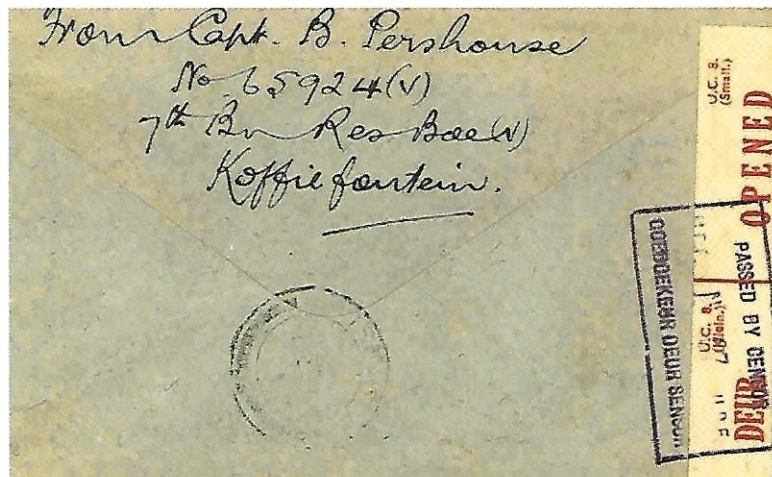 From Capt. B. Pershouse
No. 65924(V)
7th Bn Res Bde(V)
Koffiefontein.
U.C. 8.
(Small.)
OPENED
PASSED BY CENSOR
GOEDGEKEUR DEUR SENSOR
U.C. 8.
(Klein.)
DEUR